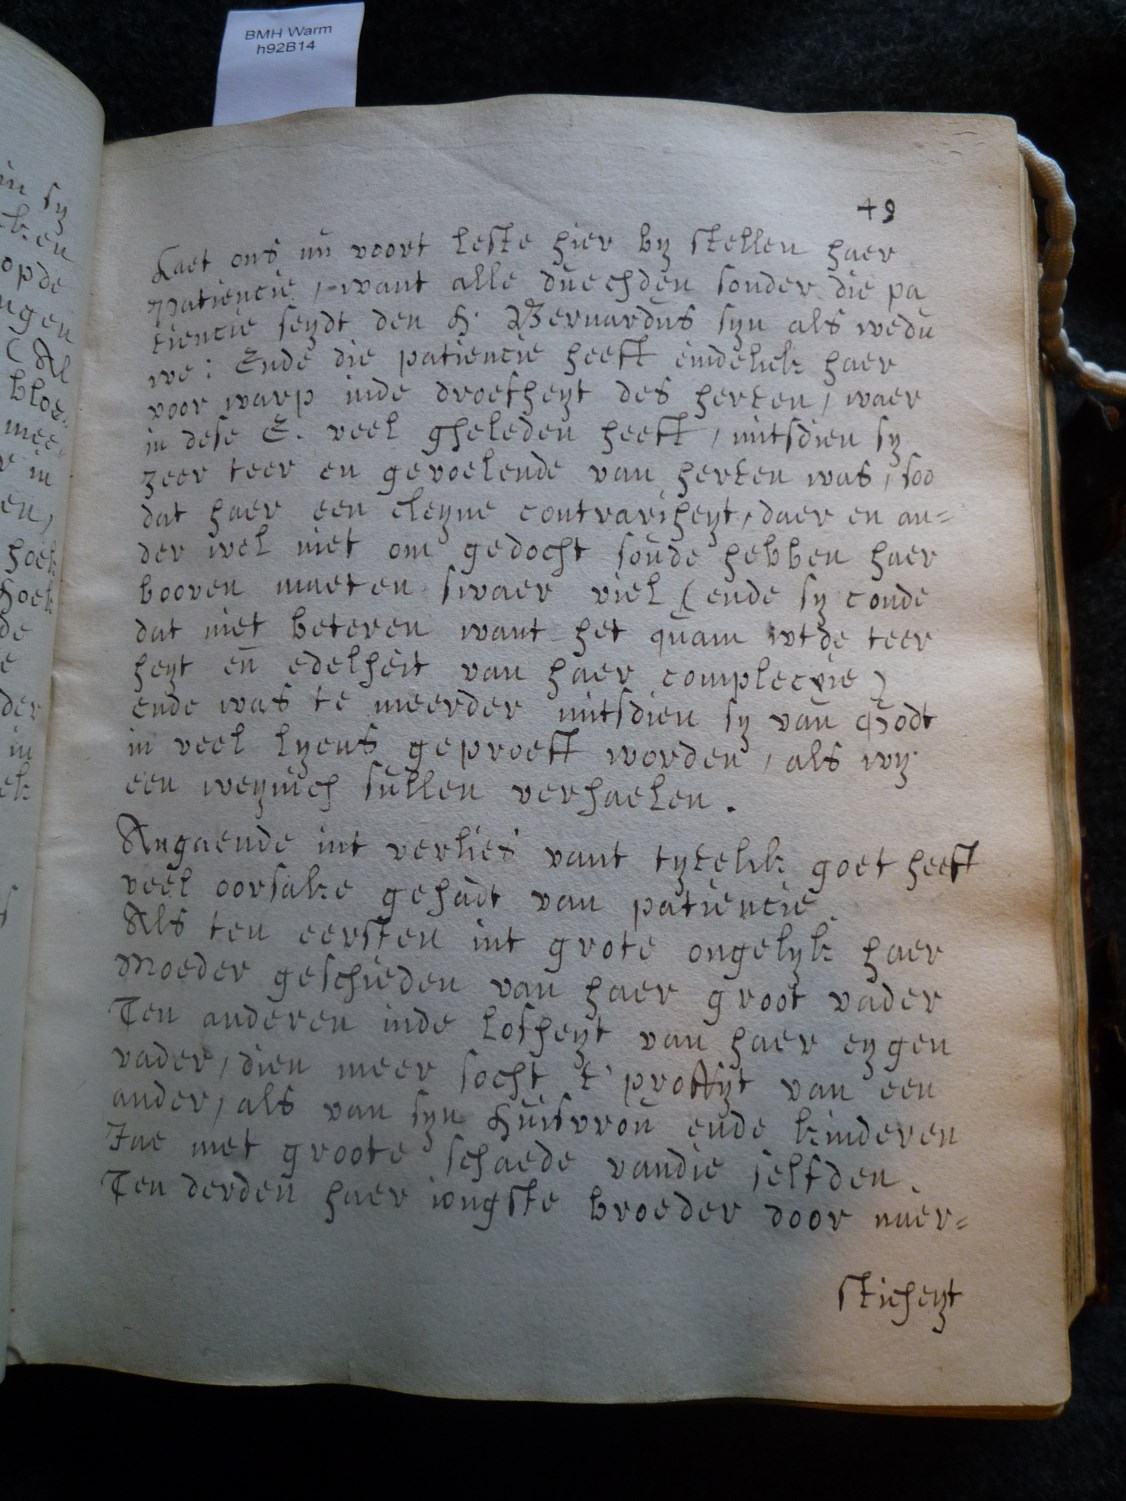 BMH Warm
h92B14
49
Laet ons nu voort leste hier by stellen haer
Patiencie, want alle duechden sonder die pa
tiencie seydt den H. Bernardus syn als wedu
we: Ende die patiencie heeft eindelick haer
voor warp inde droefheyt des herten, waer
in dese E. veel gheleden heeft, mitsdien sy
zeer teer en gevoelende van herten was, soo
dat haer een cleyne contrariheyt, daer en an=
der wel niet om gedocht soude hebben haer
booven maeten swaer viel (ende sy conde
dat niet beteren want het quam wt de teer
heyt en edelheit van haer complecxie)
ende was te meerder mitsdien sy van Godt
in veel lyens geproeft worden, als wy
een weynich sullen verhaelen.
Angaende int verlies vant tytelik goet heeft
veel oorsake gehadt van patiencie.
Als ten eersten int grote ongelyk haer
Moeder geschieden van haer groot vader
Ten anderen inde losheyt van haer eygen
vader, dien meer socht t' proffyt van een
ander, als van syn huisvrou ende kinderen
Jae met groote schaede vandie selfden.
Ten derden haer iongste broeder door naer=
sticheyt
in sy
ken
opde
ngen
bloe
mee,
in
en,
hoek
de
e
der
in
ek